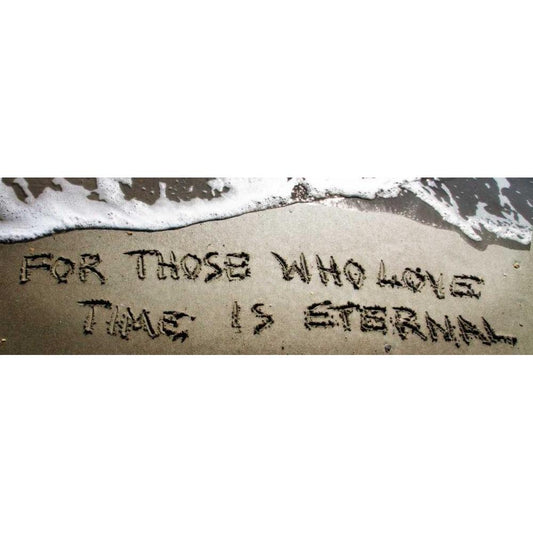 FOR THOSE WHO LOVE
TIME IS ETERNAL